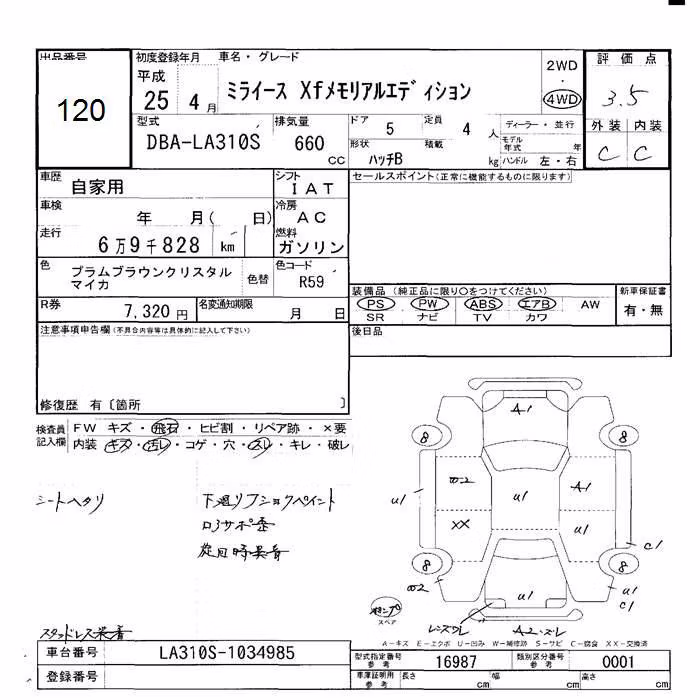 出品番号
120
初度登録年月
平成
25 4月
車名・グレード
ミライース Xfメモリアルエディション
2WD
・
4WD
評価点
3.5
外装 内装
C C
型式
DBA-LA310S
排気量
660
cc
ドア
5
定員
4
人
形状
ハッチB
積載
kg
ディーラー・並行
モデル
年式
年
ハンドル 左・右
車歴
自家用
シフト
I A T
車検
年 月( 日)
冷房
A C
走行
6万9千828 km
燃料
ガソリン
色
プラムブラウンクリスタル
マイカ
色替
色コード
R59
R券
7,320円
名変通知期限
月 日
セールスポイント(正常に機能するものに限ります)
装備品 (純正品に限り〇をつけてください)
PS PW ABS エアB AW
SR ナビ TV カワ
新車保証書
有・無
後日品
注意事項申告欄(不具合内容等は具体的に記入して下さい)
修復歴 有〔箇所 〕
検査員
記入欄
FW キズ・飛石・ヒビ割・リペア跡・×要
内装・キズ・汚レ・コゲ・穴・スレ・キレ・破レ
シートヘタリ
下廻リフショクペイント
スタッドレス装着
A1
8
8
W2
U1
A1
U1
XX
U1
C1
8
8
W2
U1
U1
C1
スペア
レンズワレ
A2・ズレ
A-キズ E-エクボ U-凹み W-補修跡 S-サビ C-腐食 XX-交換済
車台番号
LA310S-1034985
登録番号
型式指定番号
参考
16987
類別区分番号
参考
0001
車庫証明用
参考
長さ
cm
幅
cm
高さ
cm